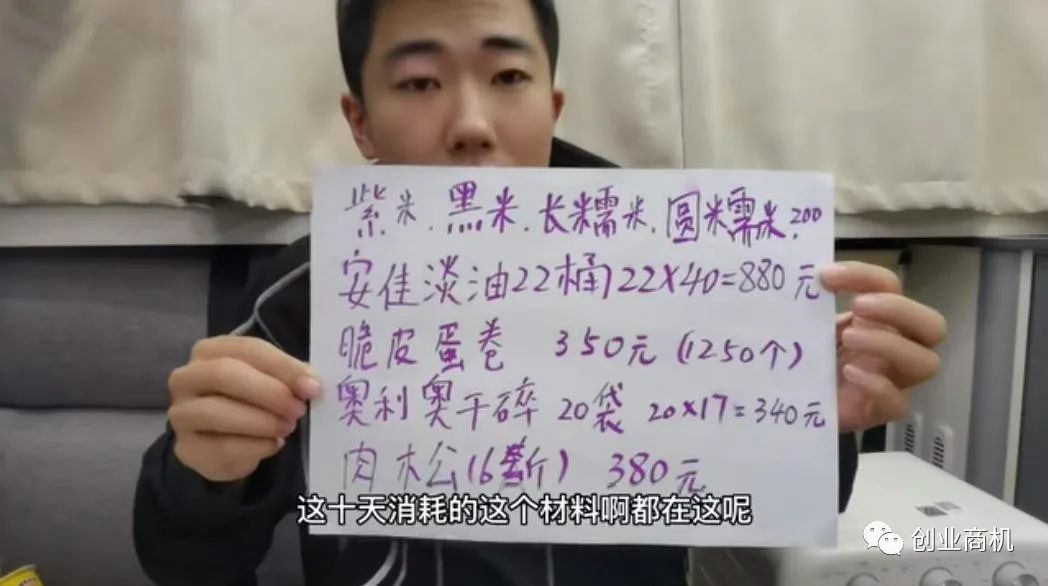 紫米.黑米.长糯米.圆糯米.200
安佳淡油22桶22X40=880元
脆皮蛋卷 350元(1250个)
奥利奥干碎 20袋 20x17=340元
肉松(6斤) 380元
这十天消耗的这个材料啊都在这呢
创业商机